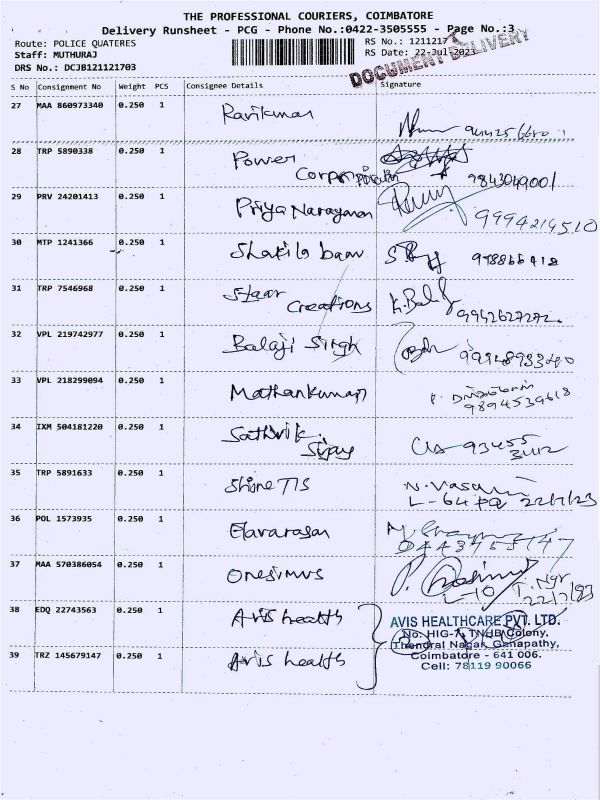 THE PROFESSIONAL COURIERS, COIMBATORE
Delivery Runsheet - PCG - Phone No.:0422-3505555 - Page No.:3
Route: POLICE QUATERES RS No.: 1211217
Staff: MUTHURAJ RS Date: 22-Jul-2023
DRS No.: DCJB121121703
DOCUMENT DELIVERY
S No Consignment No Weight PCS Consignee Details Signature
27 MAA 860973340 0.250 1 Ravikumar
28 TRP 5890338 0.250 1 Power
Corporation 9843049001
29 PRV 24201413 0.250 1 Priya Narayanan
9994214510
30 MTP 1241366 0.250 1 Shakila banu
31 TRP 7546968 0.250 1 Staar
Creations K.Bal
9942627272
32 VPL 219742977 0.250 1 Balaji Singh
33 VPL 218299094 0.250 1 Mathankumar
9894539618
34 IXM 504181220 0.250 1 Sathvik
93455
35 TRP 5891633 0.250 1 Shine TIS N. Vasan
L-64 22/7/23
36 POL 1573935 0.250 1 Elavarasan
37 MAA 570386054 0.250 1 Onesimus
L-10 T. Ngr
38 EDQ 22743563 0.250 1 Avis health
AVIS HEALTHCARE PVT. LTD.
No: HIG-7, TNHB Colony,
Thendral Nagar, Ganapathy,
Coimbatore - 641 006.
Cell: 78119 90066
39 TRZ 145679147 0.250 1 Avis health